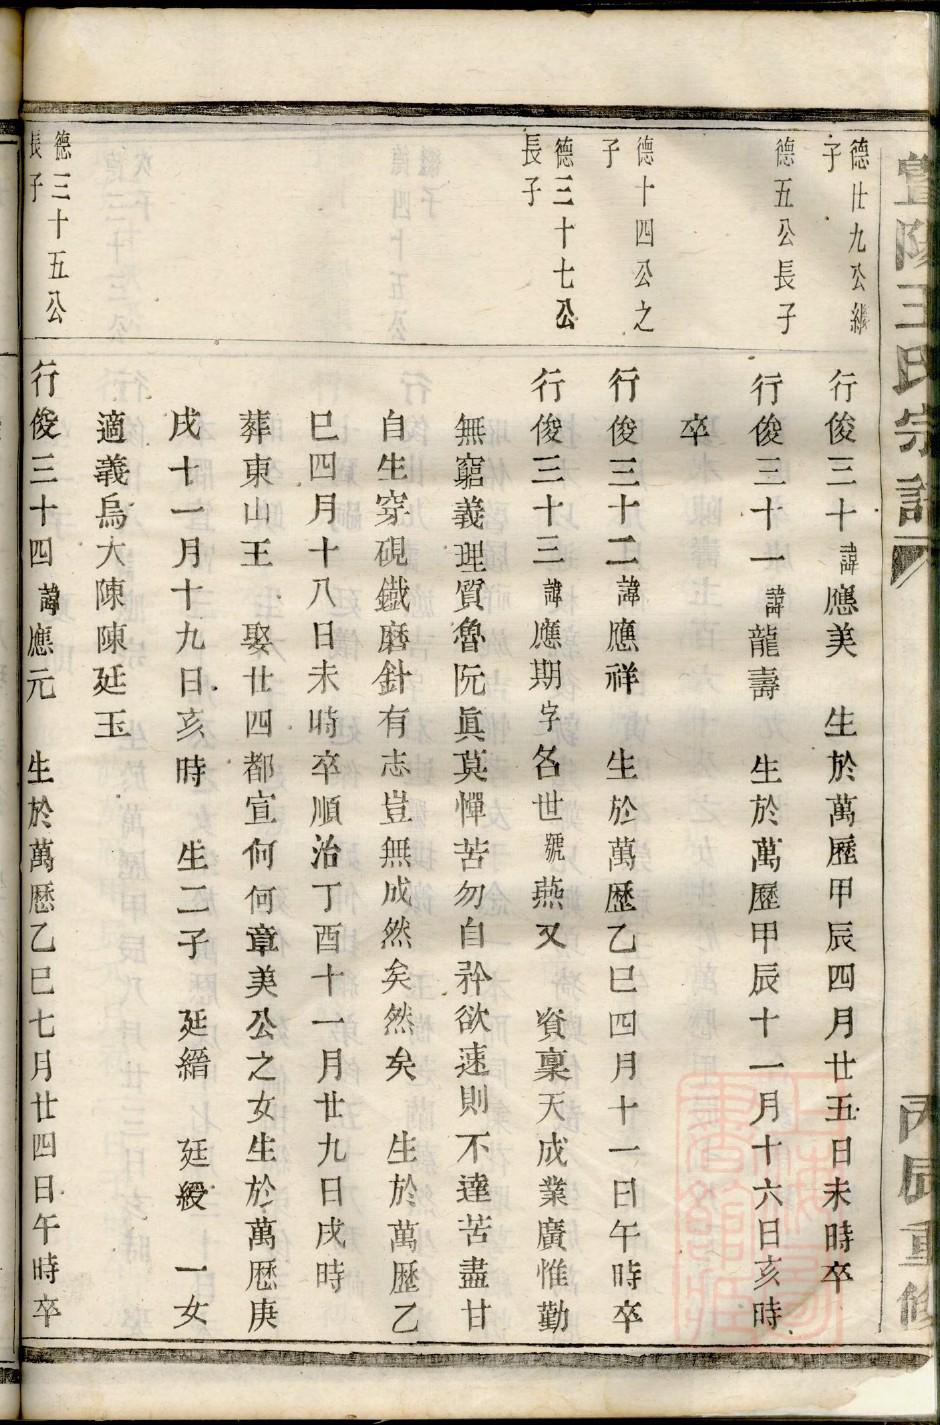 暨陽王氏宗譜
丙辰重修
德廿九公繼
子
行俊三十諱應美 生於萬歷甲辰四月廿五日未時卒
德五公長子
行俊三十一諱龍壽 生於萬歷甲辰十一月十六日亥時
卒
德十四公之
子
行俊三十二諱應祥 生於萬歷乙巳四月十一日午時卒
德三十七公
長子
行俊三十三諱應期字名世號燕又 資稟天成業廣惟勤
無窮義理質魯阮眞莫憚苦勿自矜欲速則不達苦盡甘
自生穿硯鐵磨針有志豈無成然矣然矣 生於萬歷乙
巳四月十八日未時卒順治丁酉十一月廿九日戌時
葬東山王 娶廿四都宣何何章美公之女生於萬歷庚
戌十一月十九日亥時 生二子 廷縉 廷綬 一女
適義烏大陳陳廷玉
德三十五公
長子
行俊三十四諱應元 生於萬歷乙巳七月廿四日午時卒